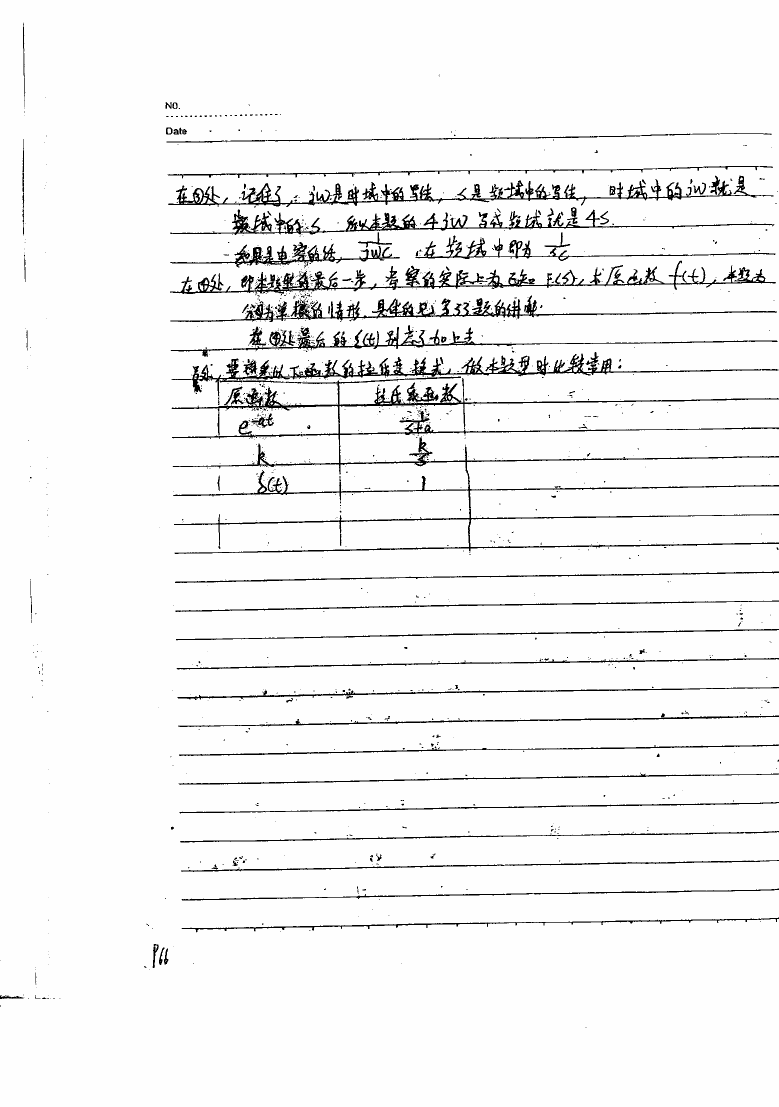 No.
Date
在③处，记住了，jw是时域中的写法，S是频域中的写法，时域中的jw就是
频域中的S. 所以本题的4jw写成频域就是4S.
如果是电容的话，1/jwc，在频域中即为 1/sc
在④处，即本题的最后一步，考察的实际上为已知F(S)，求原函数f(t)，本题为
分母为单根的情形，具体的见第33题的讲解.
在④处最后的ε(t)别忘了加上去.
另外，要熟悉以下函数的拉氏变换式，做本题型时比较常用：
原函数 拉氏象函数
e^-at 1/s+a
k k/s
δ(t) 1
P66